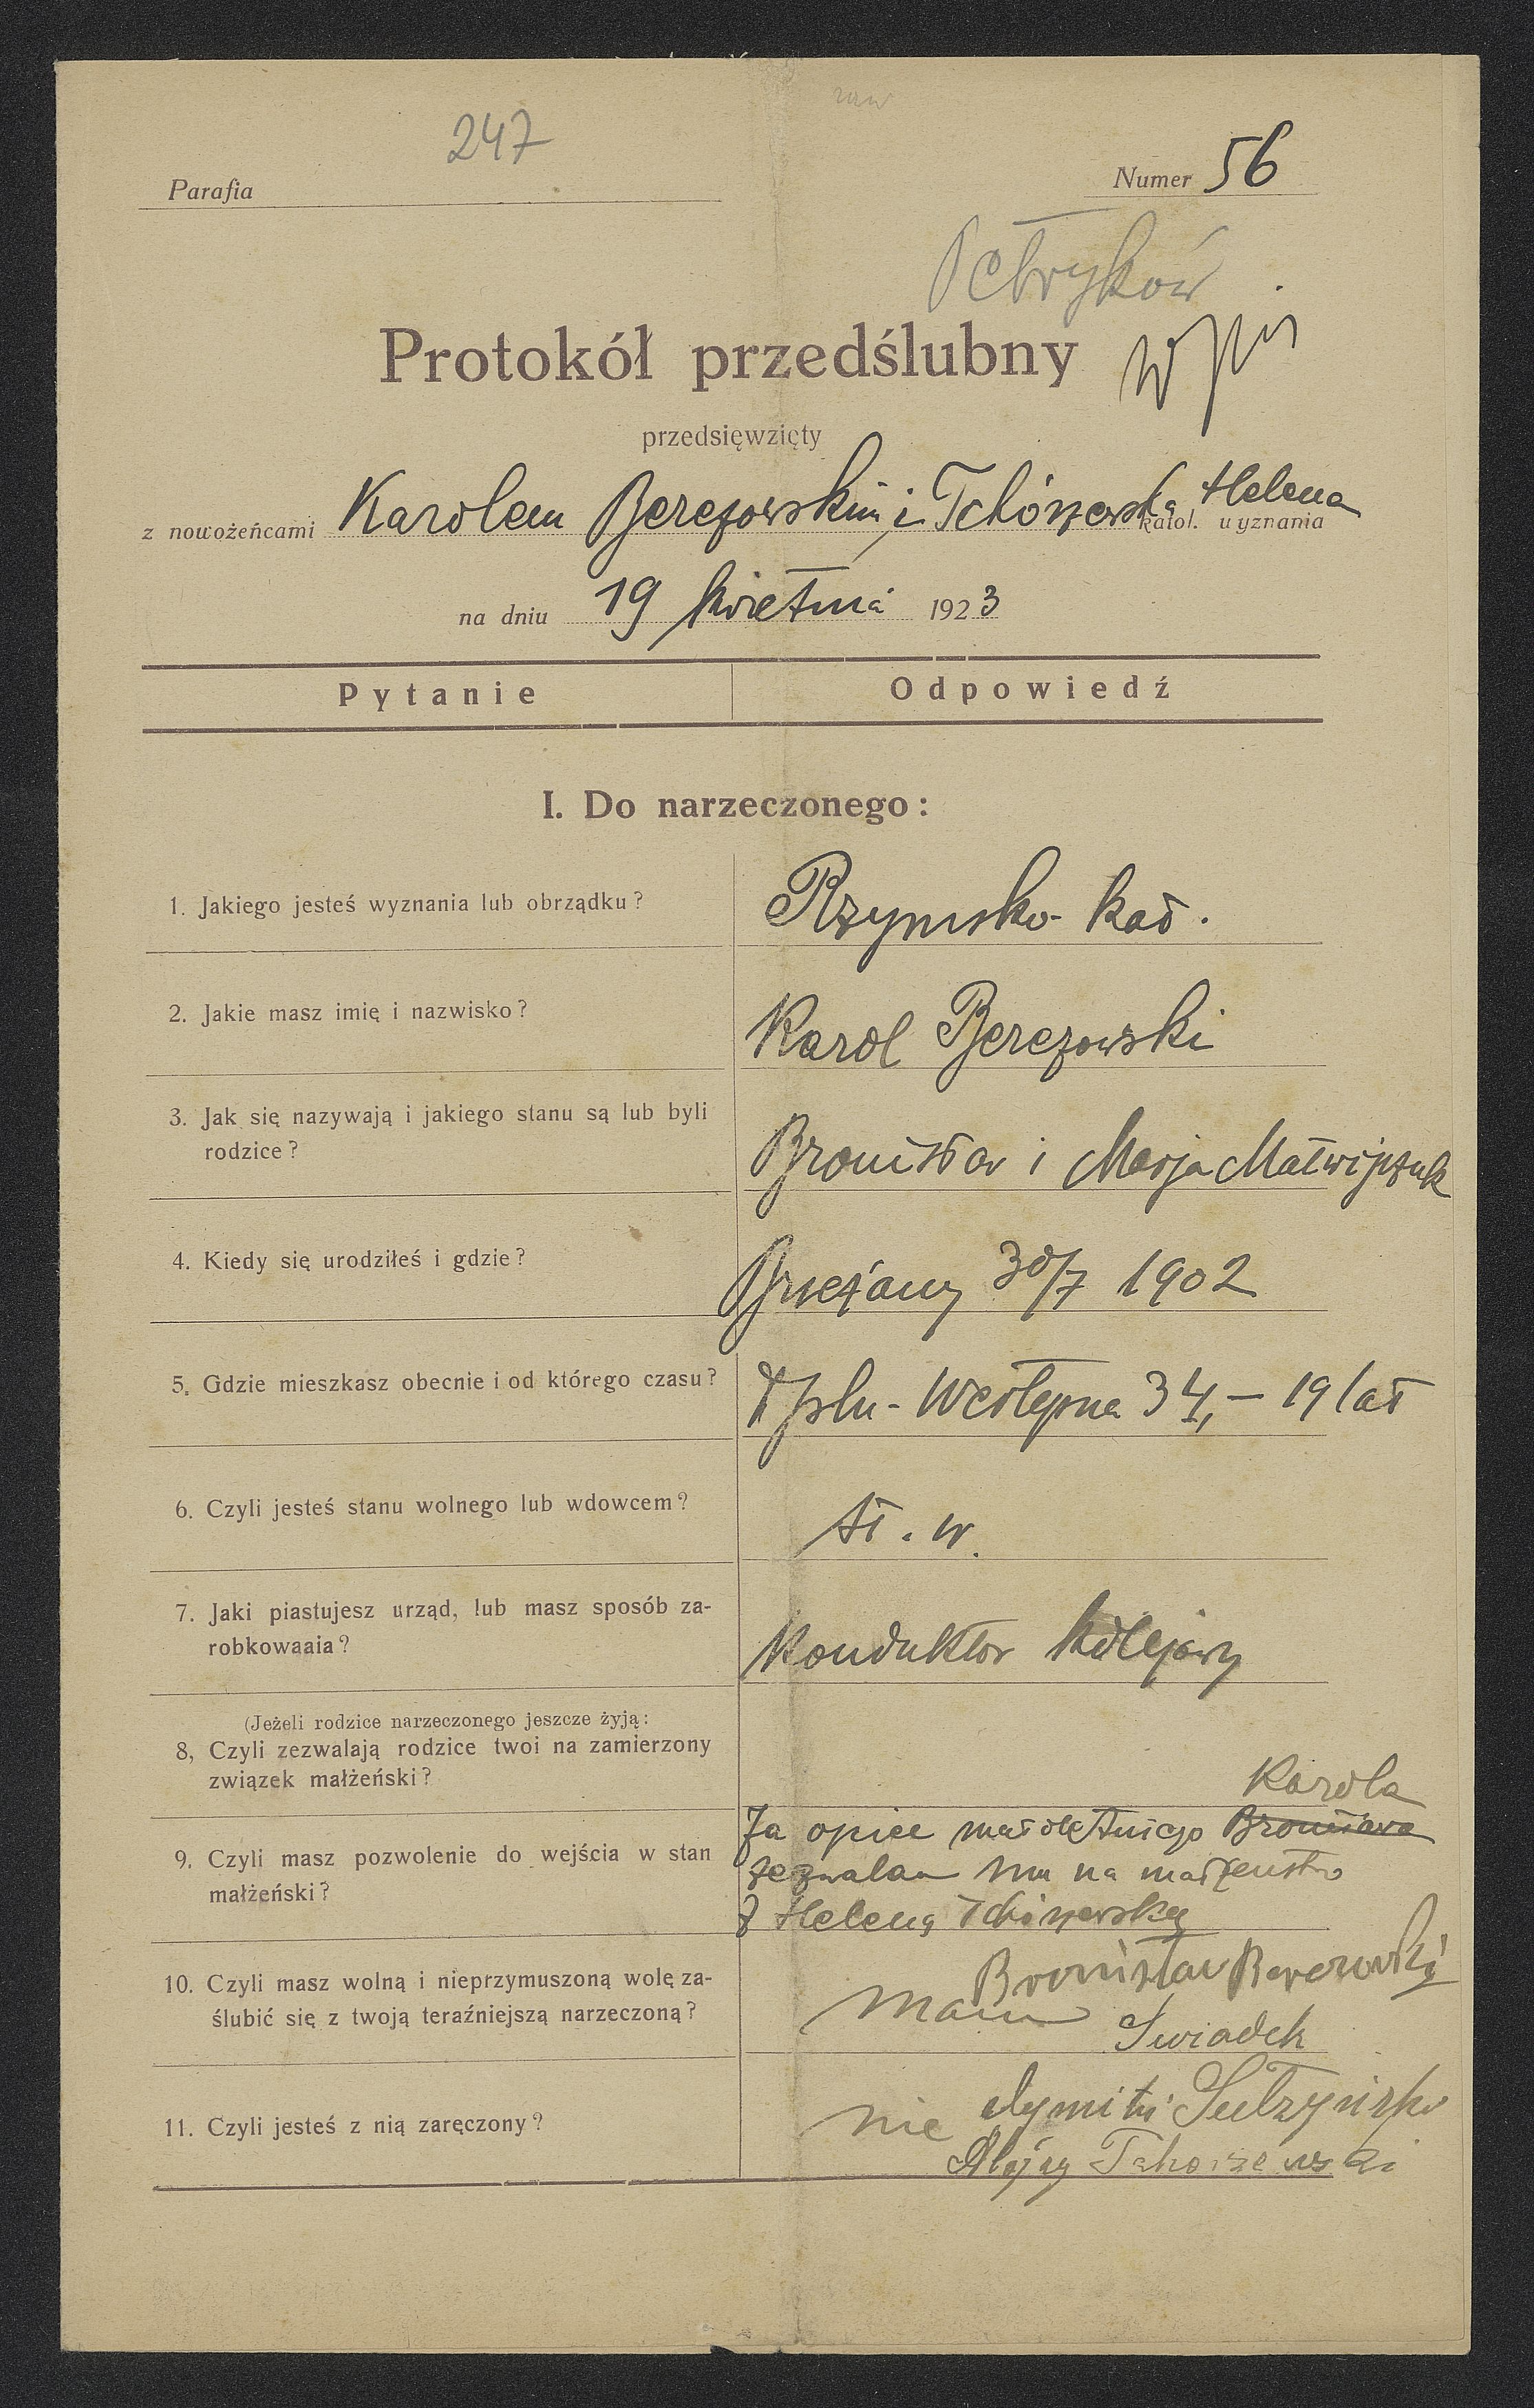 247
Parafia
Numer 56
Petryków
wpis
Protokół przedślubny
przedsięwzięty
z nowożeńcami Karolem Berezowskim i Tchórzewską Helena
katol. wyznania
na dniu 19 kwietnia 1923
Pytanie Odpowiedź
I. Do narzeczonego:
1. Jakiego jesteś wyznania lub obrządku? Rzymsko-kat.
2. Jakie masz imię i nazwisko? Karol Berezowski
3. Jak się nazywają i jakiego stanu są lub byli
rodzice? Bronisław i Marja Matwijczuk
4. Kiedy się urodziłeś i gdzie? Brzeżany 30/7 1902
5. Gdzie mieszkasz obecnie i od którego czasu? 34, – 19 lat
6. Czyli jesteś stanu wolnego lub wdowcem? st. w.
7. Jaki piastujesz urząd, lub masz sposób za-
robkowaaia? Konduktor kolejowy
(Jeżeli rodzice narzeczonego jeszcze żyją:
8, Czyli zezwalają rodzice twoi na zamierzony
związek małżeński?
Karola
Ja opiec małoletniego Bronisława
9. Czyli masz pozwolenie do wejścia w stan
zezwalam mu na małżeństwo
małżeński?
z Heleną Tchórzewską
Bronisław Berezowski
10. Czyli masz wolną i nieprzymuszoną wolę za-
ślubić się z twoją teraźniejszą narzeczoną? mam
Swiadek
11. Czyli jesteś z nią zaręczony? nie
Alojzy Tchorzewski